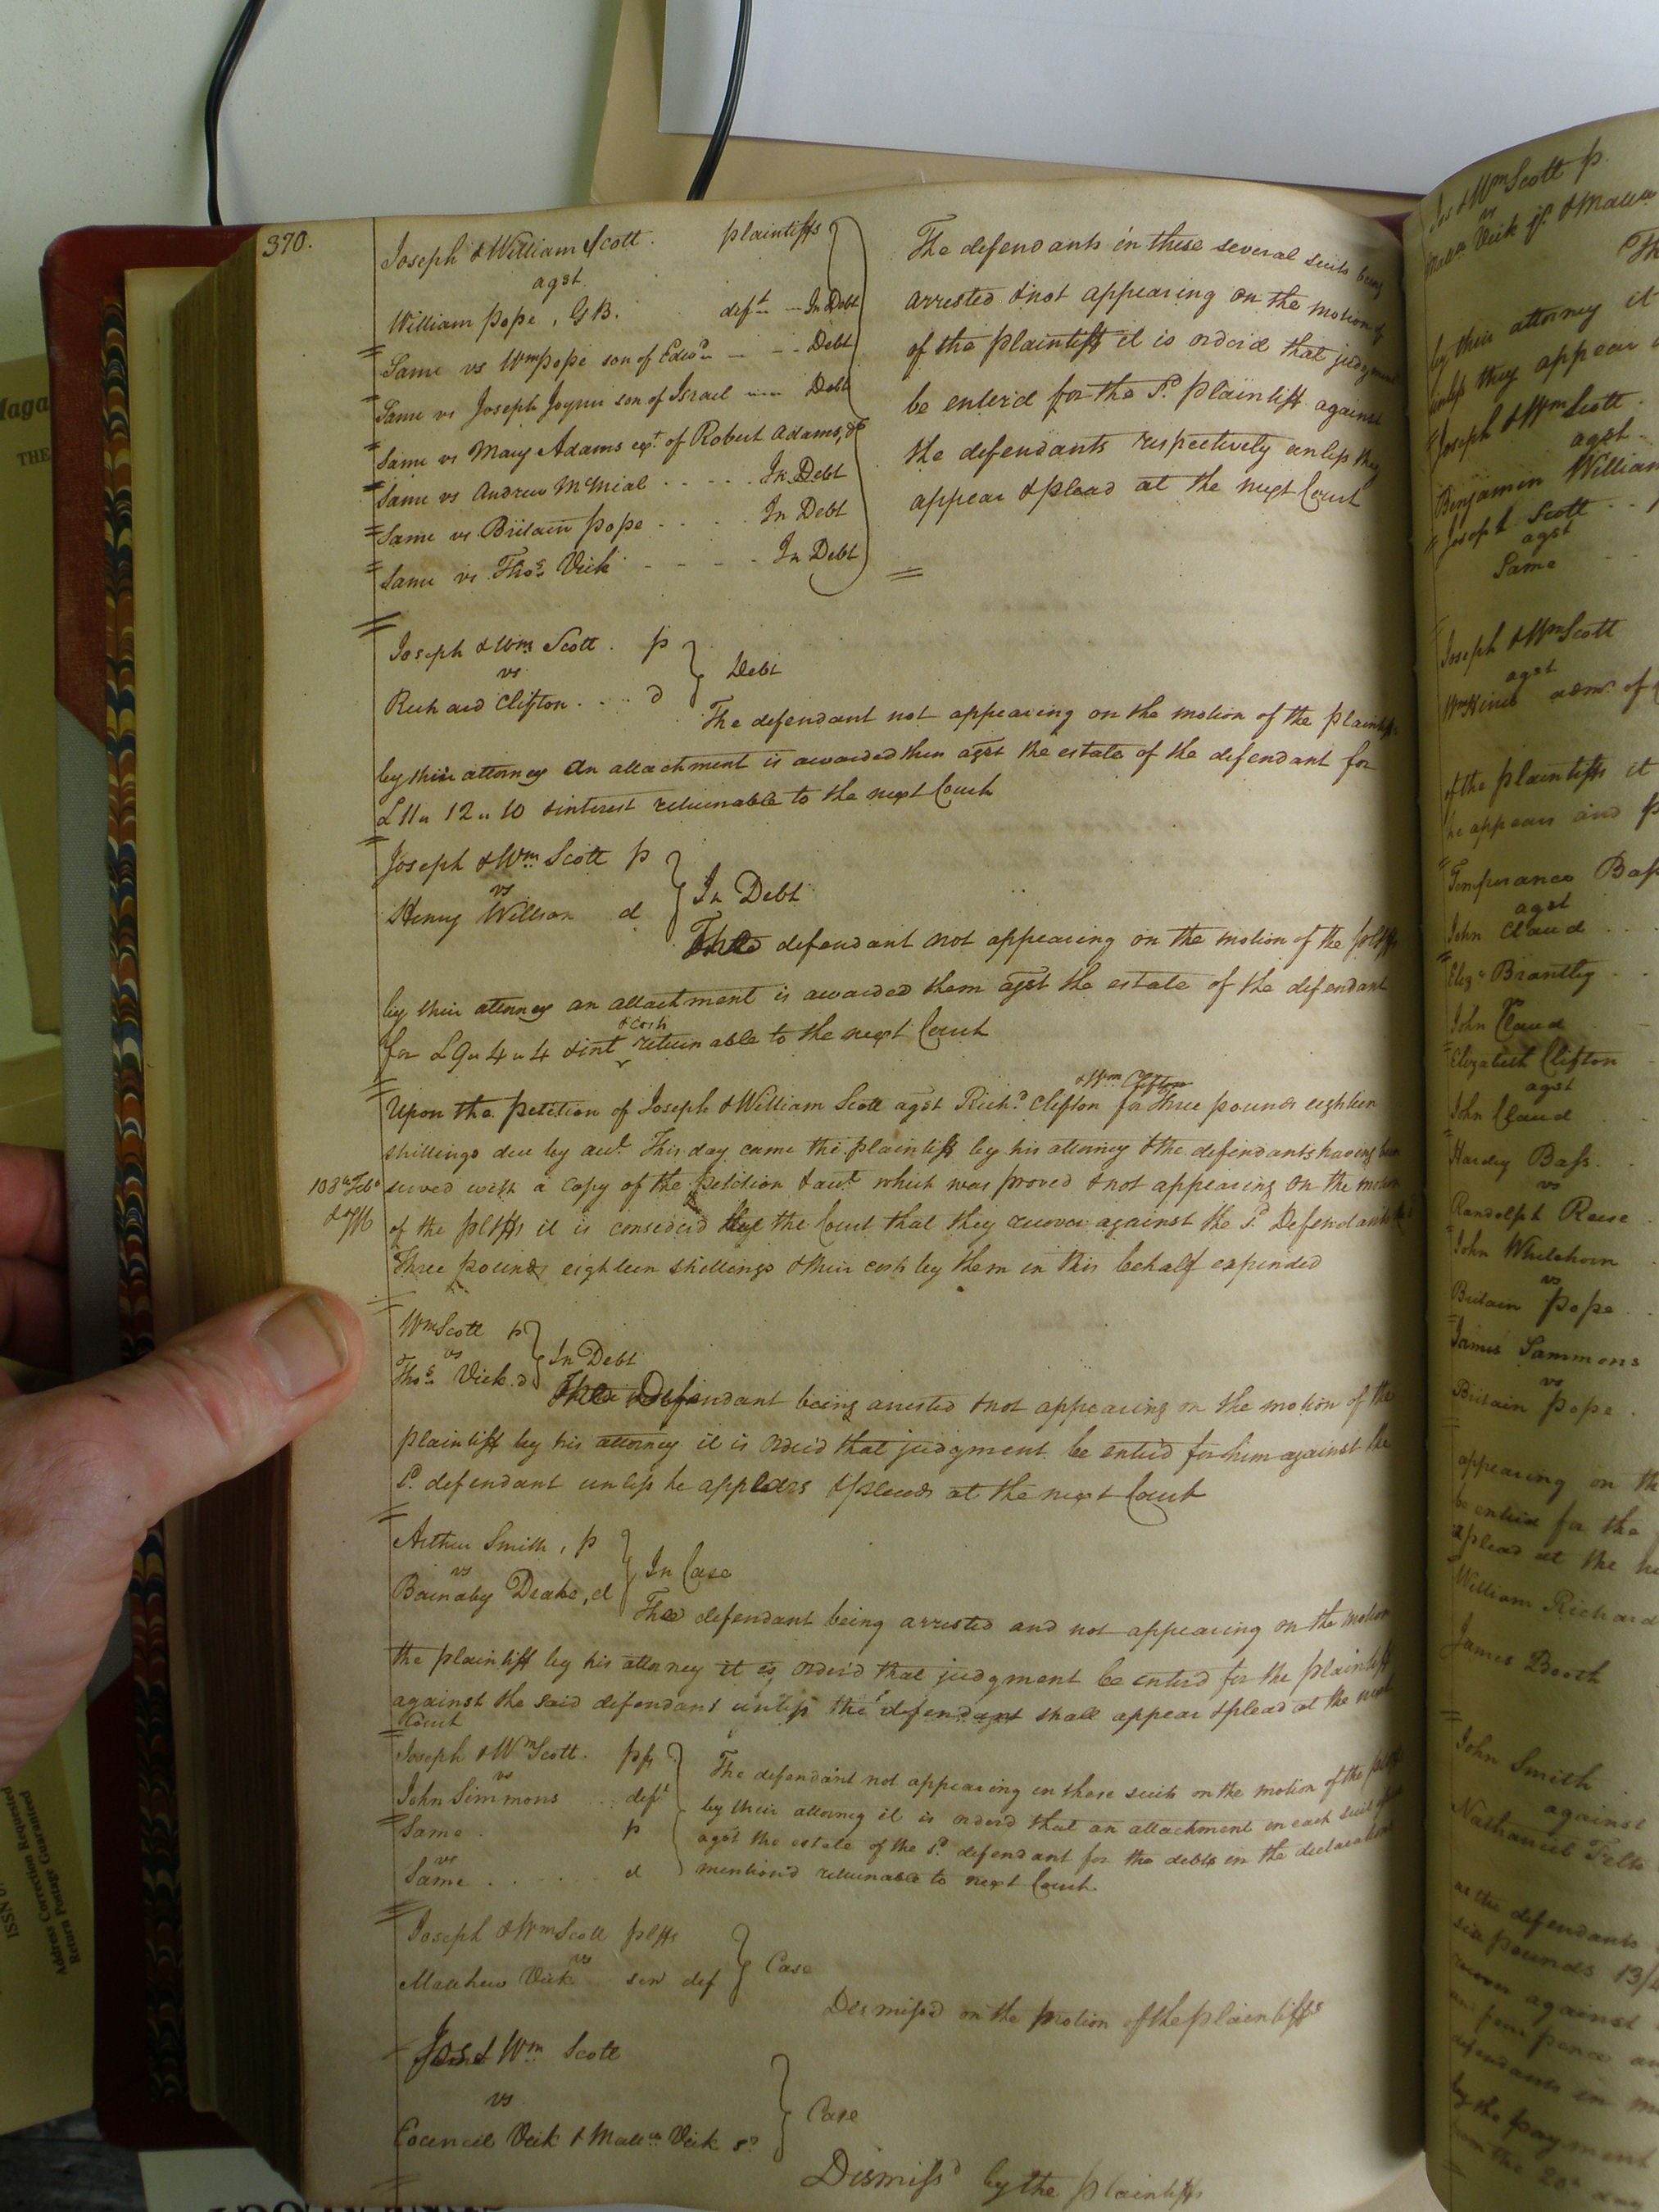 370.
Joseph & William Scott. plaintiffs
agst
William Pope, GB. deft -- In Debt
Same vs Wm Pope son of Edwd -- - - Debt
Same vs Joseph Joyner son of Israel --- Debt
Same vs Mary Adams exx. of Robert Adams,
Same vs Andrew McMial . - - . . In Debt
Same vs Britain Pope . . . . In Debt
Same vs Thos Vick - - - - . In Debt
The defendants in these several suits being
arrested & not appearing on the motion of
of the plaintiff it is order'd that judgment
be enter'd for the Sd. plaintiff against
the defendants respectively unless they
appear & plead at the next Court
Joseph & Wm Scott . p
vs
Richard Clifton . . . . d
Debt
The defendant not appearing on the motion of the plaintiffs
by their attorney an attachment is awarded them agst the estate of the defendant for
£11 " 12 " 10 & interest returnable to the next Court
Joseph & Wm Scott p
vs
Henry Willson d
In Debt
The defendant not appearing on the motion of the pltffs
by their attorney an attachment is awarded them agst the estate of the defendant
& costs
for £9 " 4 " 4 & int returnable to the next Court
& Wm Clifton
Upon the petition of Joseph & William Scott agst Richd. Clifton for three pounds eighteen
shillings due by acct. This day came the plaintiff by his attorney & the defendants having been
served with a copy of the petition & acct which was proved & not appearing on the motion
of the pltffs it is considerd by the Court that they recover against the Sd. Defendants
Three pounds eighteen shillings & their costs by them in this behalf expended
Wm Scott p
vs
Thos Vick . d
In Debt
The Defendant being arrested & not appearing on the motion of the
plaintiff by his attorney it is order'd that judgment be enterd for him against the
Sd. defendant unless he appears & pleads at the next Court
Arthur Smith, p
vs
Barnaby Drake, d
In Case
The defendant being arrested and not appearing on the motion
the plaintiff by his attorney it is order'd that judgment be enterd for the plaintiff
against the said defendant unless the defendant shall appear & plead at the next
Court
Joseph & Wm Scott. pffs
vs
John Simmons . . deft
Same . p
vs
Same . . . . . d
The defendant not appearing in these suits on the motion of the pltffs
by their attorney it is orderd that an attachment in each suit
agst the estate of the Sd. defendant for the debts in the declaration
mention'd returnable to next Court.
Joseph & Wm Scott pltffs
vs
Matthew Vick senr def
Case
Dismiss'd on the motion of the plaintiffs
Jos & Wm Scott
vs
Council Vick & Mattw Vick sr
Case
Dismiss'd by the plaintiffs
Jos & Wm Scott p.
vs
Vick jr. & Matthew
by their attorney it
unless they appear
Joseph & Wm Scott .
agst -
Benjamin William
Joseph Scott . .
agst
Same
Joseph & Wm Scott
agst
admr. of
of the plaintiffs it
he appears and p
Temperance Bass
agst
John Claud . .
Eliz. Brantley . .
John Claud
Elizabeth Clifton
agst
John Claud
Hardy Bass. .
vs
Randolph Reese .
John Whitehorn
vs
Britain Pope . .
James Sammons
vs
Britain Pope .
appearing on th
be enterd for the
& plead at the
William Richard
James Booth
John Smith
against
Nathaniel Felts
as the defendants
six pounds 13/
recover against
four pence an
defendants in m
by the payment
from the 20th day